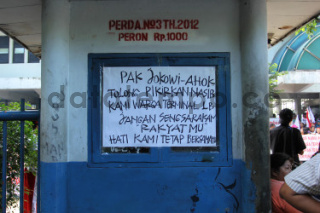 PERDA.Nº3 TH.2012
PERON Rp.1000
PAK JOKOWI-AHOK
TOLONG PIKIRKAN NASIB
KAMI WARGA TERMINAL LB
JANGAN SENGSARAKAN
RAKYATMU
HATI KAMI TETAP BERSAMAMU